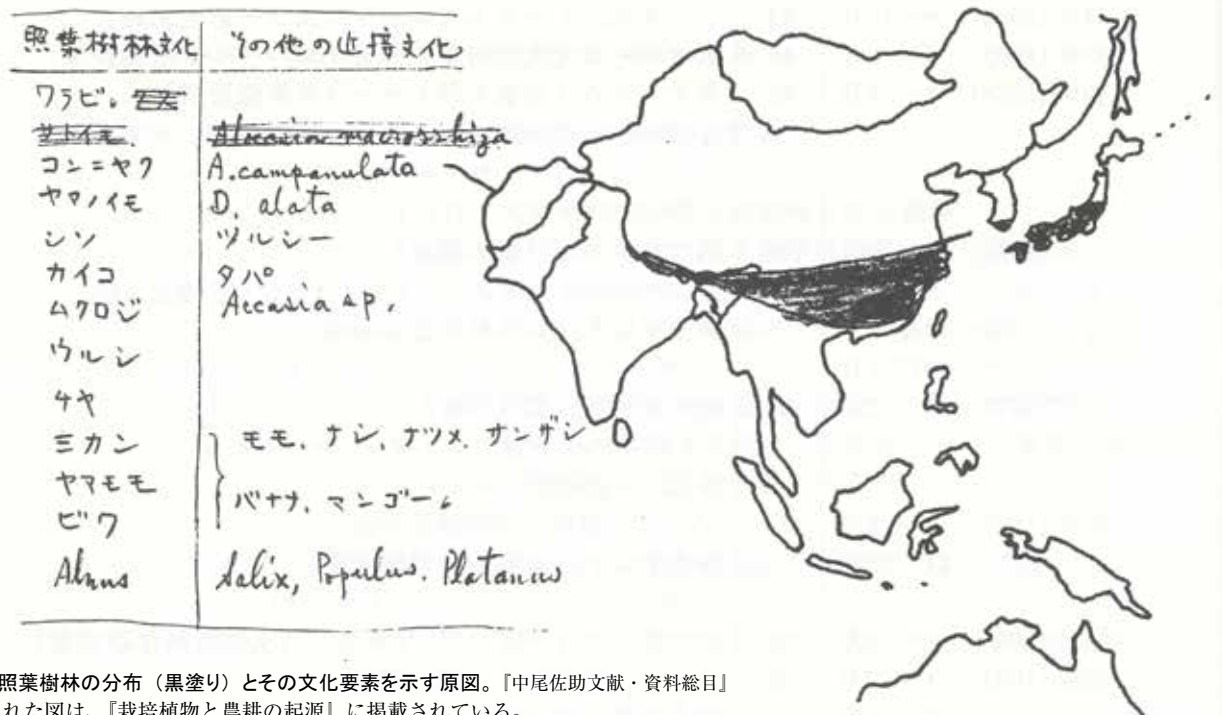 照葉樹林文化 その他の近接文化
ワラビ。
サトイモ. Alocasia macrorrhiza
コンニヤク A. campanulata
ヤマノイモ D. alata
シソ ツルシー
カイコ タパ
ムクロジ Accasia sp.
ウルシ
チヤ
ミカン モモ、ナシ、ナツメ、サンザシ
ヤマモモ
バナナ、マンゴー。
ビワ
Alnus Salix, Populus. Platanus
照葉樹林の分布（黒塗り）とその文化要素を示す原図。『中尾佐助文献・資料総目』
された図は、『栽培植物と農耕の起源』に掲載されている。